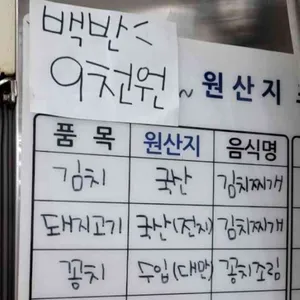 백반
9천원
~ 원산지
품 목 원산지 음식명
김치 국산 김치찌개
돼지고기 국산(전지) 김치찌개
꽁치 수입(대만) 꽁치조림